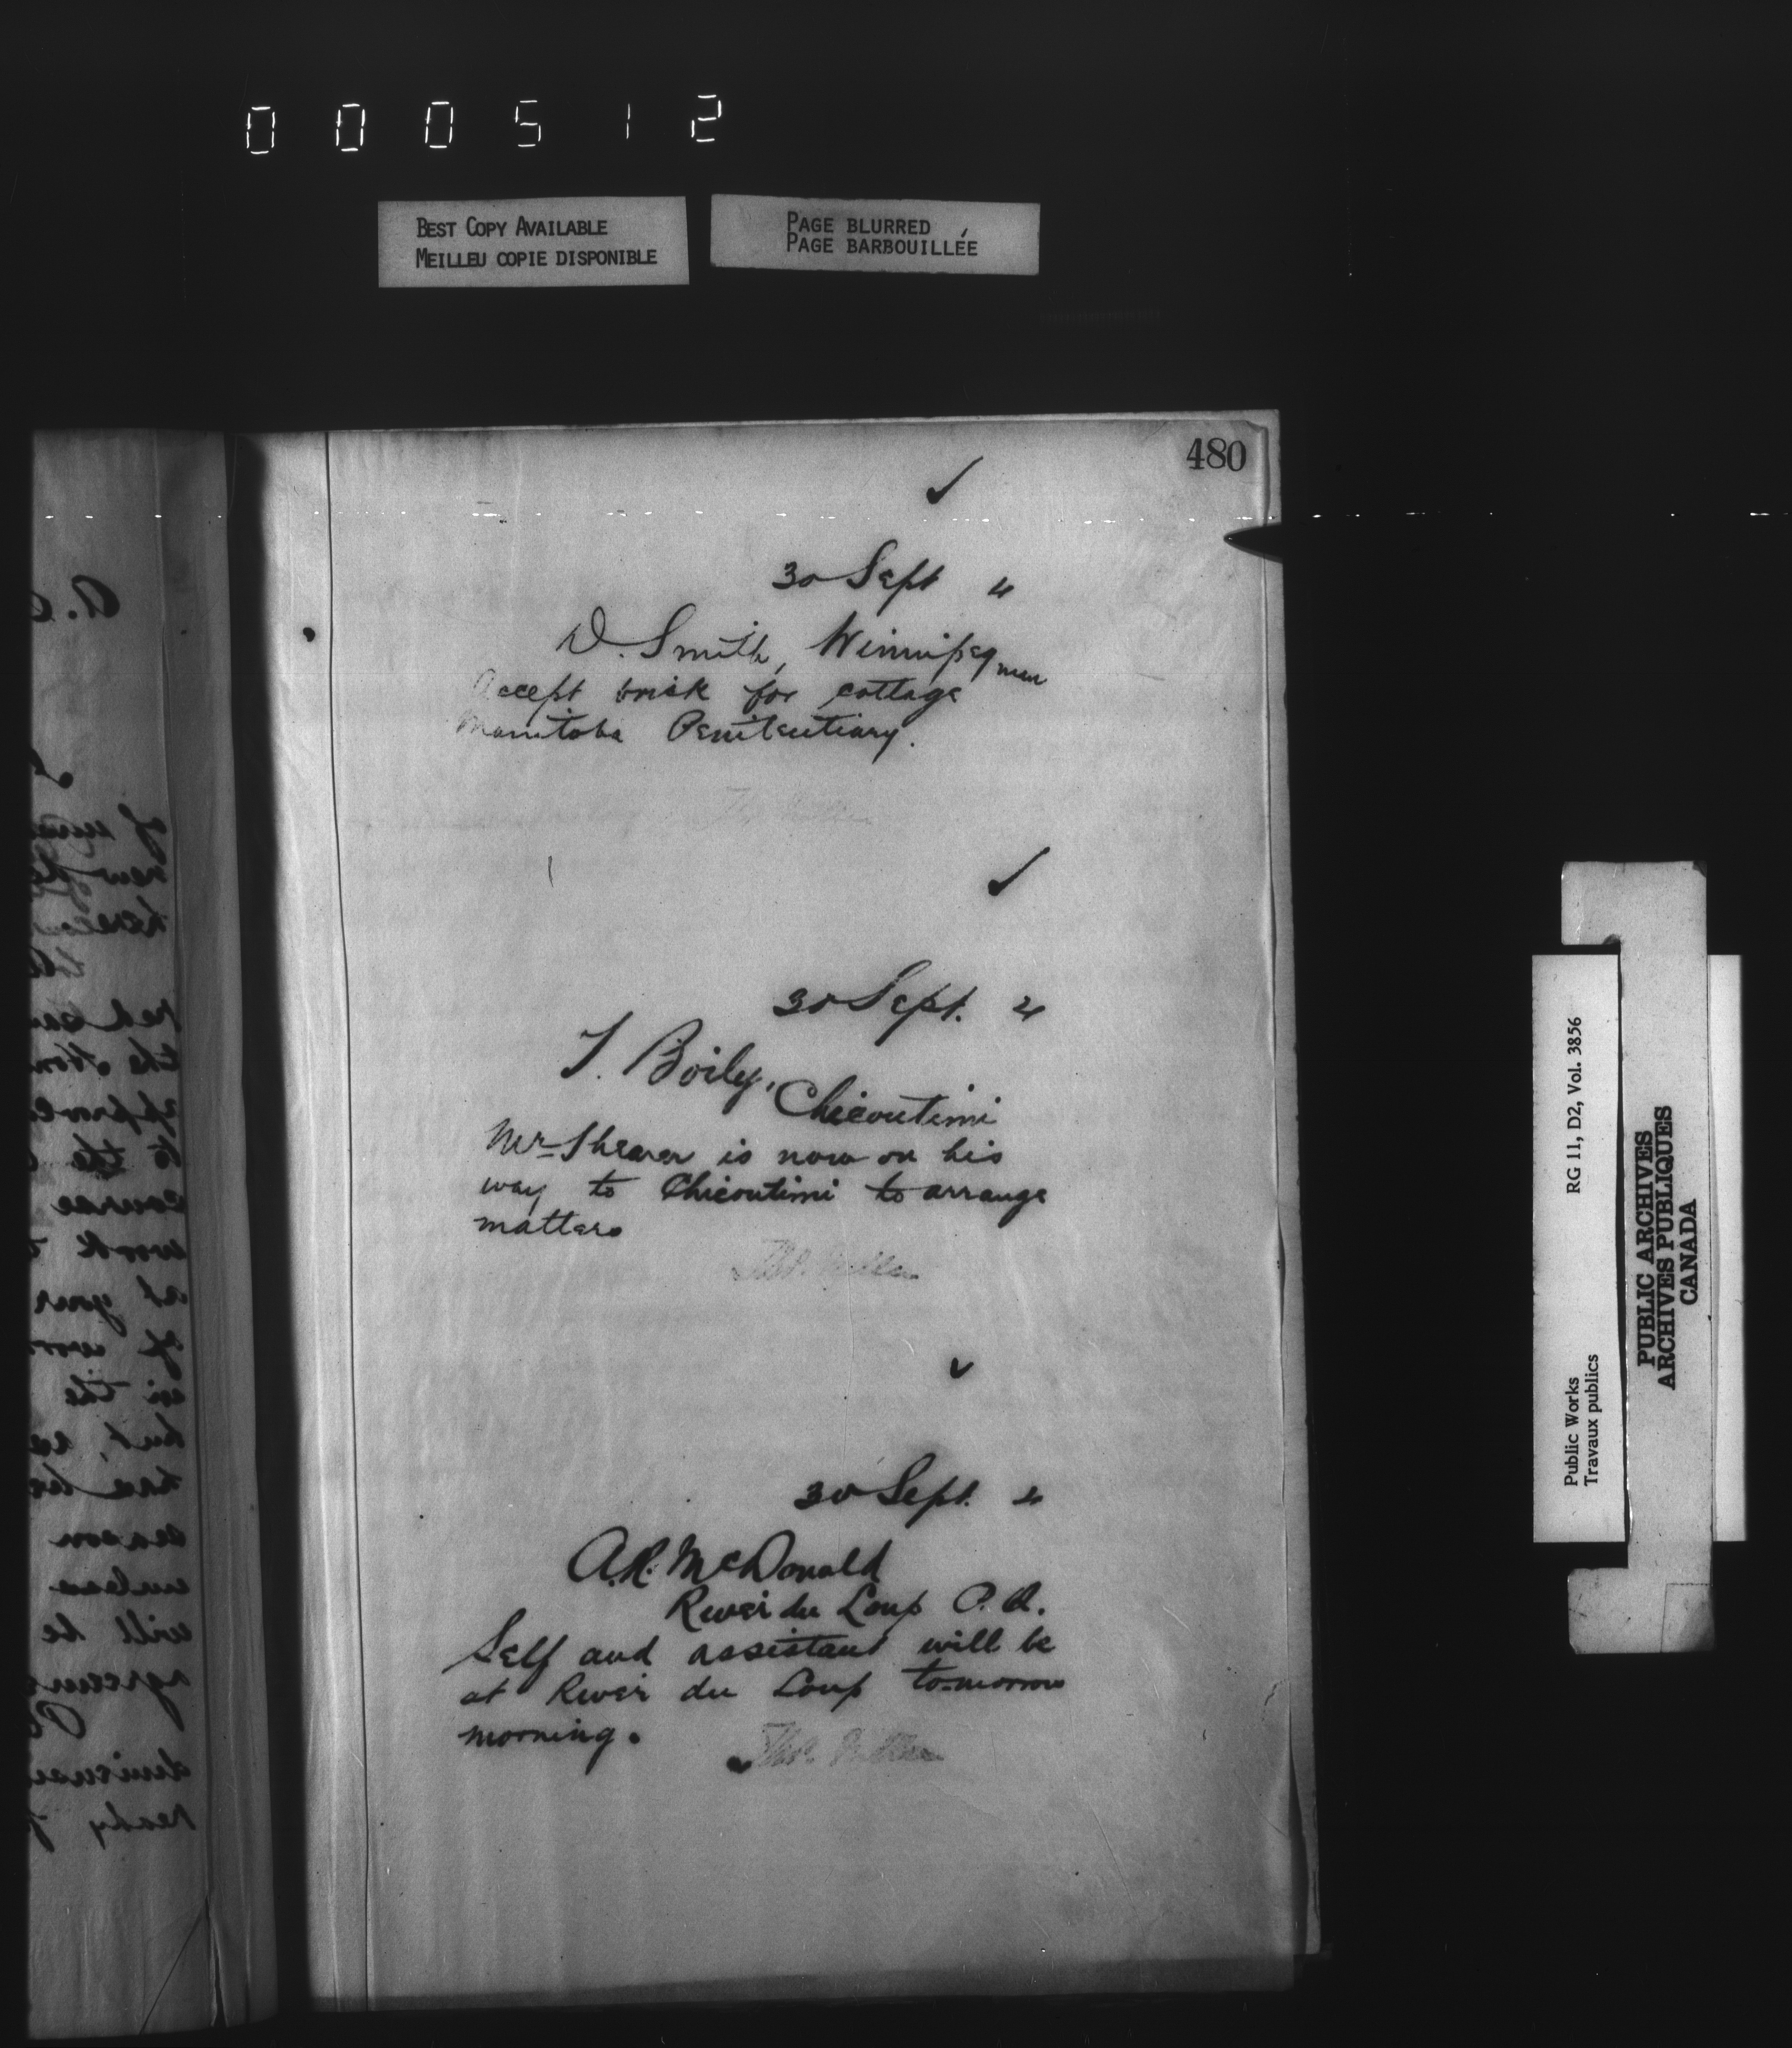 000512
BEST COPY AVAILABLE
MEILLEU COPIE DISPONIBLE
PAGE BLURRED
PAGE BARBOUILLÉE
480
30 Sept 4
D. Smith, Winnipeg Man
Accept brick for cottage
Manitoba Penitentiary.
30 Sept. 4
T. Boily, Chicoutimi
Mr Shearer is now on his
way to Chicoutimi to arrange
matters
30 Sept. 4
A.R. McDonald
River du Loup P.Q.
Self and assistant will be
at River du Loup to-morrow
morning.
RG 11, D2, Vol. 3856
Public Works
Travaux publics
PUBLIC ARCHIVES
ARCHIVES PUBLIQUES
CANADA